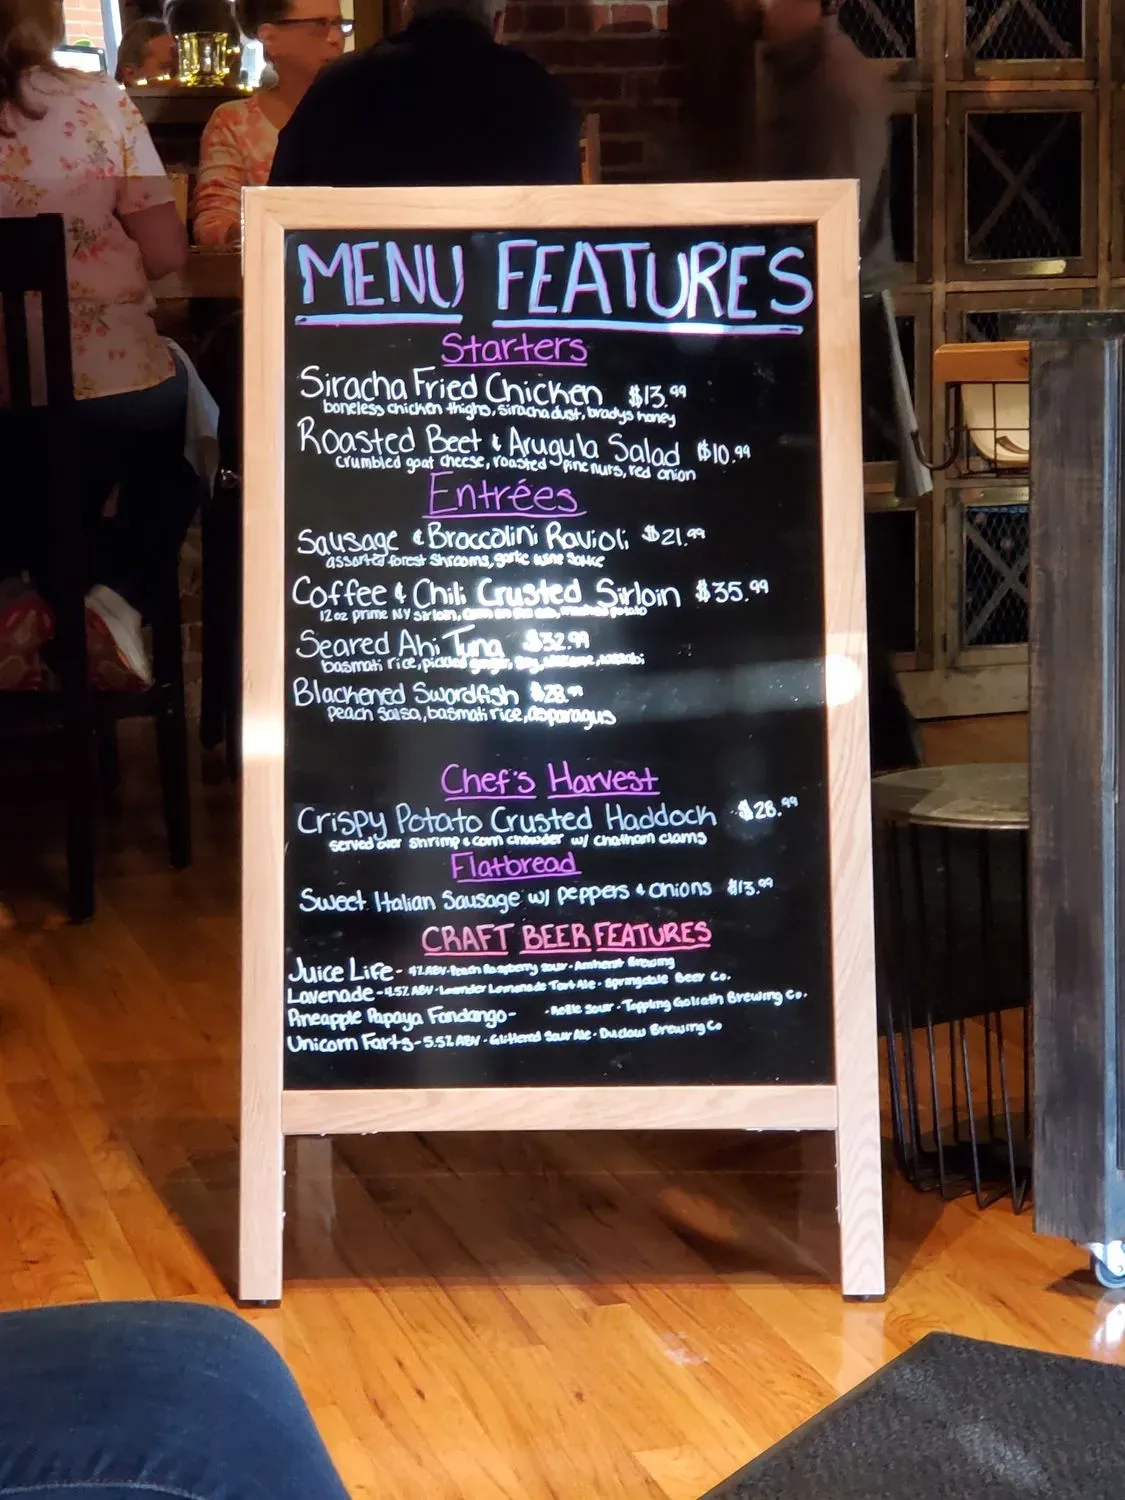 MENU FEATURES
Starters
Siracha Fried Chicken $13.99
boneless chicken thighs, siracha dust, bradys honey
Roasted Beet & Arugula Salad $10.99
crumbled goat cheese, roasted pine nuts, red onion
Entrées
Sausage & Broccolini Ravioli $21.99
assorted forest shrooms, garlic wine sauce
Coffee & Chili Crusted Sirloin $35.99
12oz prime NY sirloin, corn on the cob, mashed potato
Seared Ahi Tuna $32.99
basmati rice, pickled ginger, soy, wasabi
Blackened Swordfish $28.99
peach salsa, basmati rice, asparagus
Chef's Harvest
Crispy Potato Crusted Haddock $28.99
served over shrimp & corn chowder w/ chatham clams
Flatbread
Sweet Italian Sausage w/ peppers & onions $13.99
CRAFT BEER FEATURES
Juice Life - 4% ABV - Peach Raspberry Sour - Amherst Brewing
Lavenade - 4.5% ABV - Lavender Lemonade Tart Ale - Springdale Beer Co.
Pineapple Papaya Fandango - - Kettle Sour - Toppling Goliath Brewing Co.
Unicorn Farts - 5.5% ABV - Glittered Sour Ale - Duclaw Brewing Co